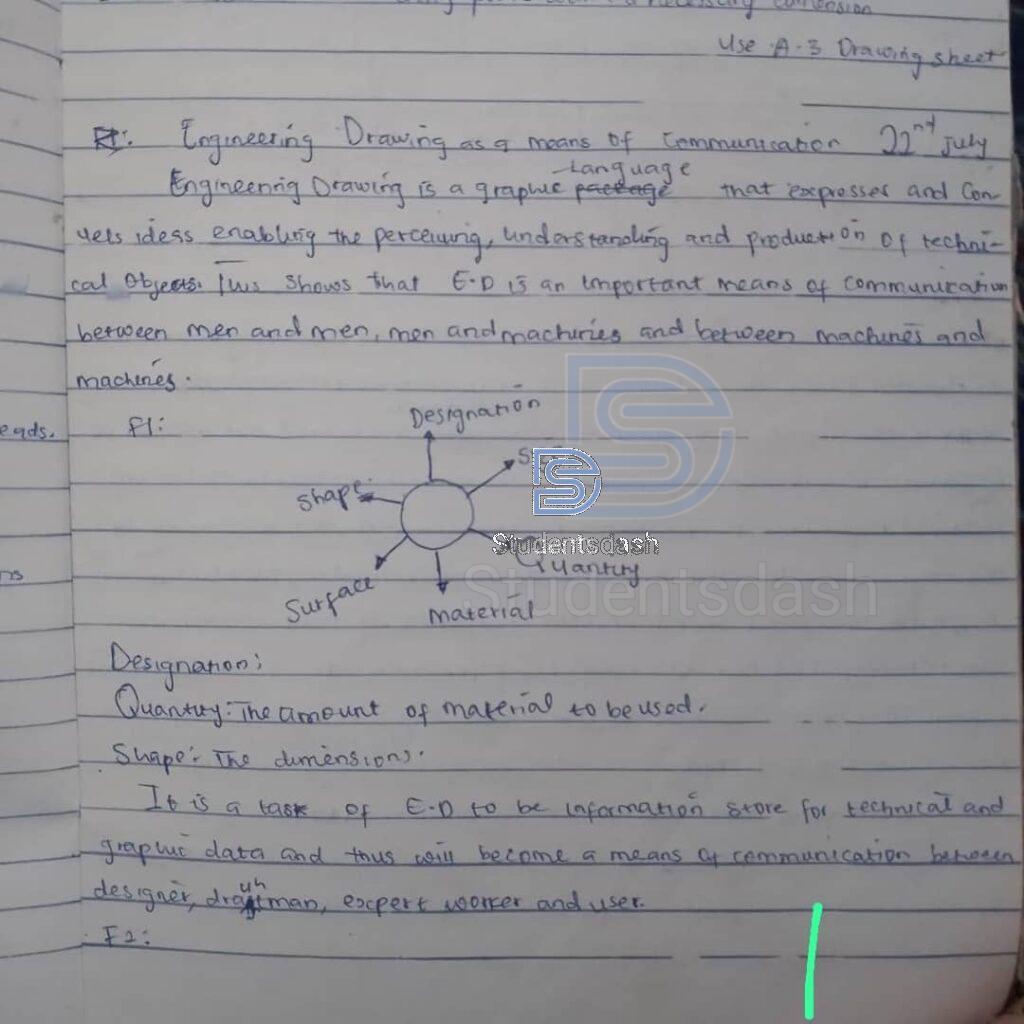 necessary dimension
Use A-3 Drawing sheet
Engineering Drawing as a means of Communication 22nd July
Language
Engineering Drawing is a graphic package that expresses and Con
veis ideas enabling the perceiving, understanding and production of techni-
cal Objects. This shows that E.D is an important means of communication
between men and men, men and machines and between machines and
machines.
eads.
F1:
Designation
S
Shape
Studentsdash
Quantity
ns
Surface
material
Studentsdash
Designation:
Quantity: The amount of material to be used.
Shape: The dimensions.
It is a task of E.D to be information store for technical and
graphic data and thus will become a means of communication between
designer, draughtman, expert worker and user.
F2: